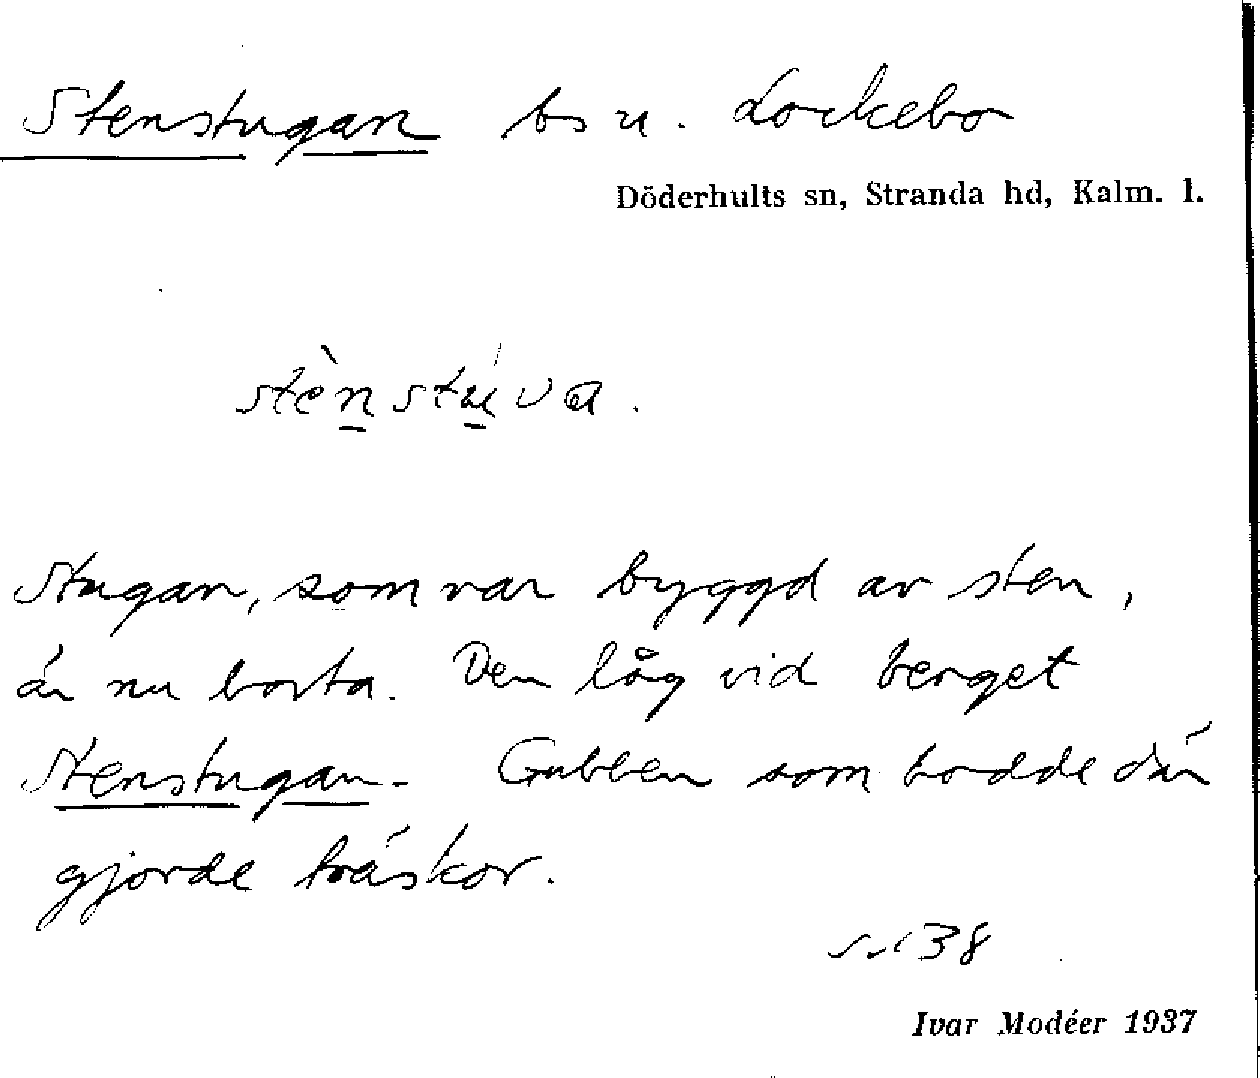 Stenstugan bs u. Lockebo
Döderhults sn, Stranda hd, Kalm. l.
stènstúva.
Stugan, som var byggd av sten,
är nu borta. Den låg vid berget
Stenstugan. Gubben som bodde där
gjorde träskor.
38
Ivar Modéer 1937